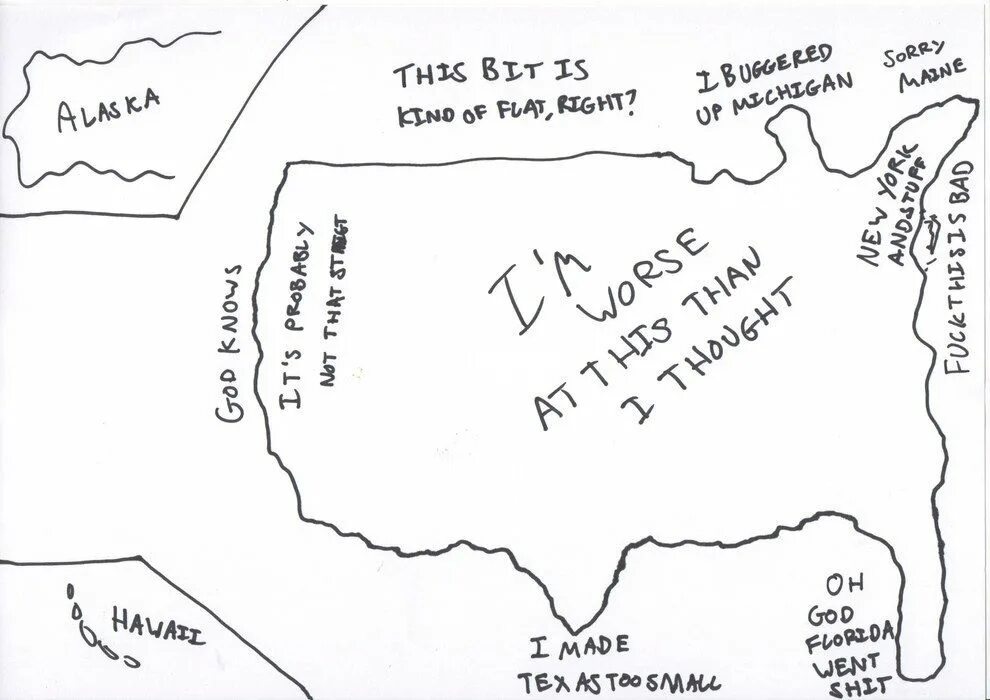 ALASKA
THIS BIT IS
KIND OF FLAT, RIGHT?
I BUGGERED
UP MICHIGAN
SORRY
MAINE
NEW YORK
AND STUFF
FUCK THIS IS BAD
GOD KNOWS
IT'S PROBABLY
NOT THAT
I'M
WORSE
AT THIS THAN
I THOUGHT
HAWAII
I MADE
TEXAS TOO SMALL
OH
GOD
FLORIDA
WENT
SHIT